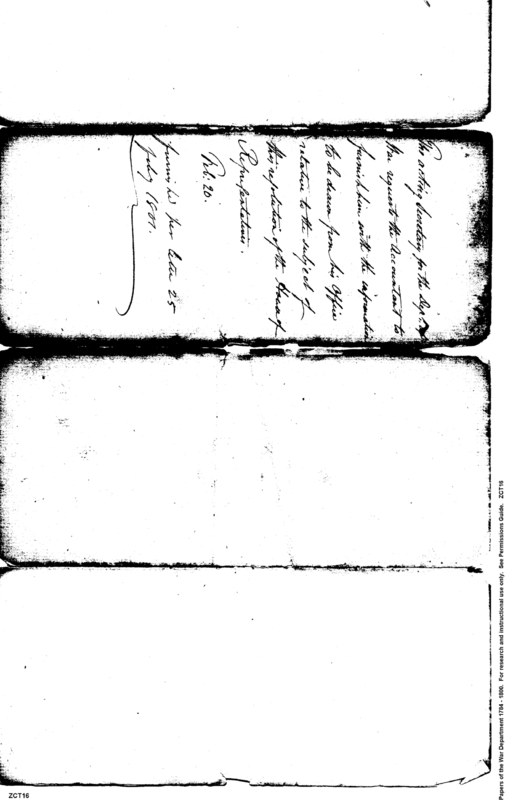 The acting Secretary for the Dept of
War requests the Accountant to
furnish him with the information
to be drawn from his Office
relative to the subject of
this resolution of the House of
Representatives.
Feb. 20.
furnished per letter 25
feby 1801.
Papers of the War Department 1784 - 1800. For research and instructional use only. See Permissions Guide. ZCT16
ZCT16